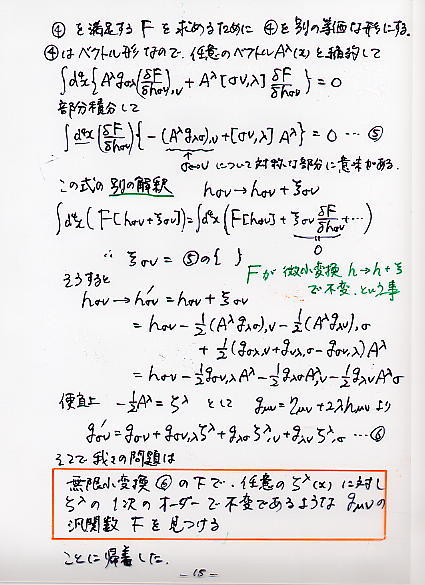 ④ を満足する F を求めるために ④を別の等価な形にする.
④はベクトル形なので、任意のベクトル A^λ(x) と縮約して
∫d⁴x{A^λ g_{σλ}(δF/δh_{σν})_{,ν} + A^λ[σν,λ] δF/δh_{σν}} = 0
部分積分して
∫d⁴x (δF/δh_{σν}){-(A^λ g_{λσ})_{,ν} + [σν,λ] A^λ} = 0 … ⑤
↑ σ↔ν について対称な部分に意味がある.
この式の 別の解釈 h_{σν} → h_{σν} + ξ_{σν}
∫d⁴x (F[h_{σν}+ξ_{σν}]) = ∫d⁴x (F[h_{σν}] + ξ_{σν} δF/δh_{σν} + …)
‖
0
∴ ξ_{σν} = ⑤の { }
F が 微小変換 h→h+ξ
で不変. という事
そうすると
h_{σν} → h'_{σν} = h_{σν} + ξ_{σν}
= h_{σν} - ½(A^λ g_{λσ})_{,ν} - ½(A^λ g_{λν})_{,σ}
+ ½(g_{σλ,ν} + g_{νλ,σ} - g_{σν,λ})A^λ
= h_{σν} - ½g_{σν,λ}A^λ - ½g_{λσ}A^λ_{,ν} - ½g_{λν}A^λ_{,σ}
便宜上 -½A^λ = ζ^λ として g_{μν} = η_{μν} + 2λh_{μν} より
g'_{σν} = g_{σν} + g_{σν,λ}ζ^λ + g_{λσ}ζ^λ_{,ν} + g_{λν}ζ^λ_{,σ} … ⑥
そこで 我々の問題は
無限小変換 ⑥ の下で、任意の ζ^λ(x) に対し
ζ^λ の 1次のオーダーで不変であるような g_{μν} の
汎関数 F を見つける
ことに帰着した.
- 15 -